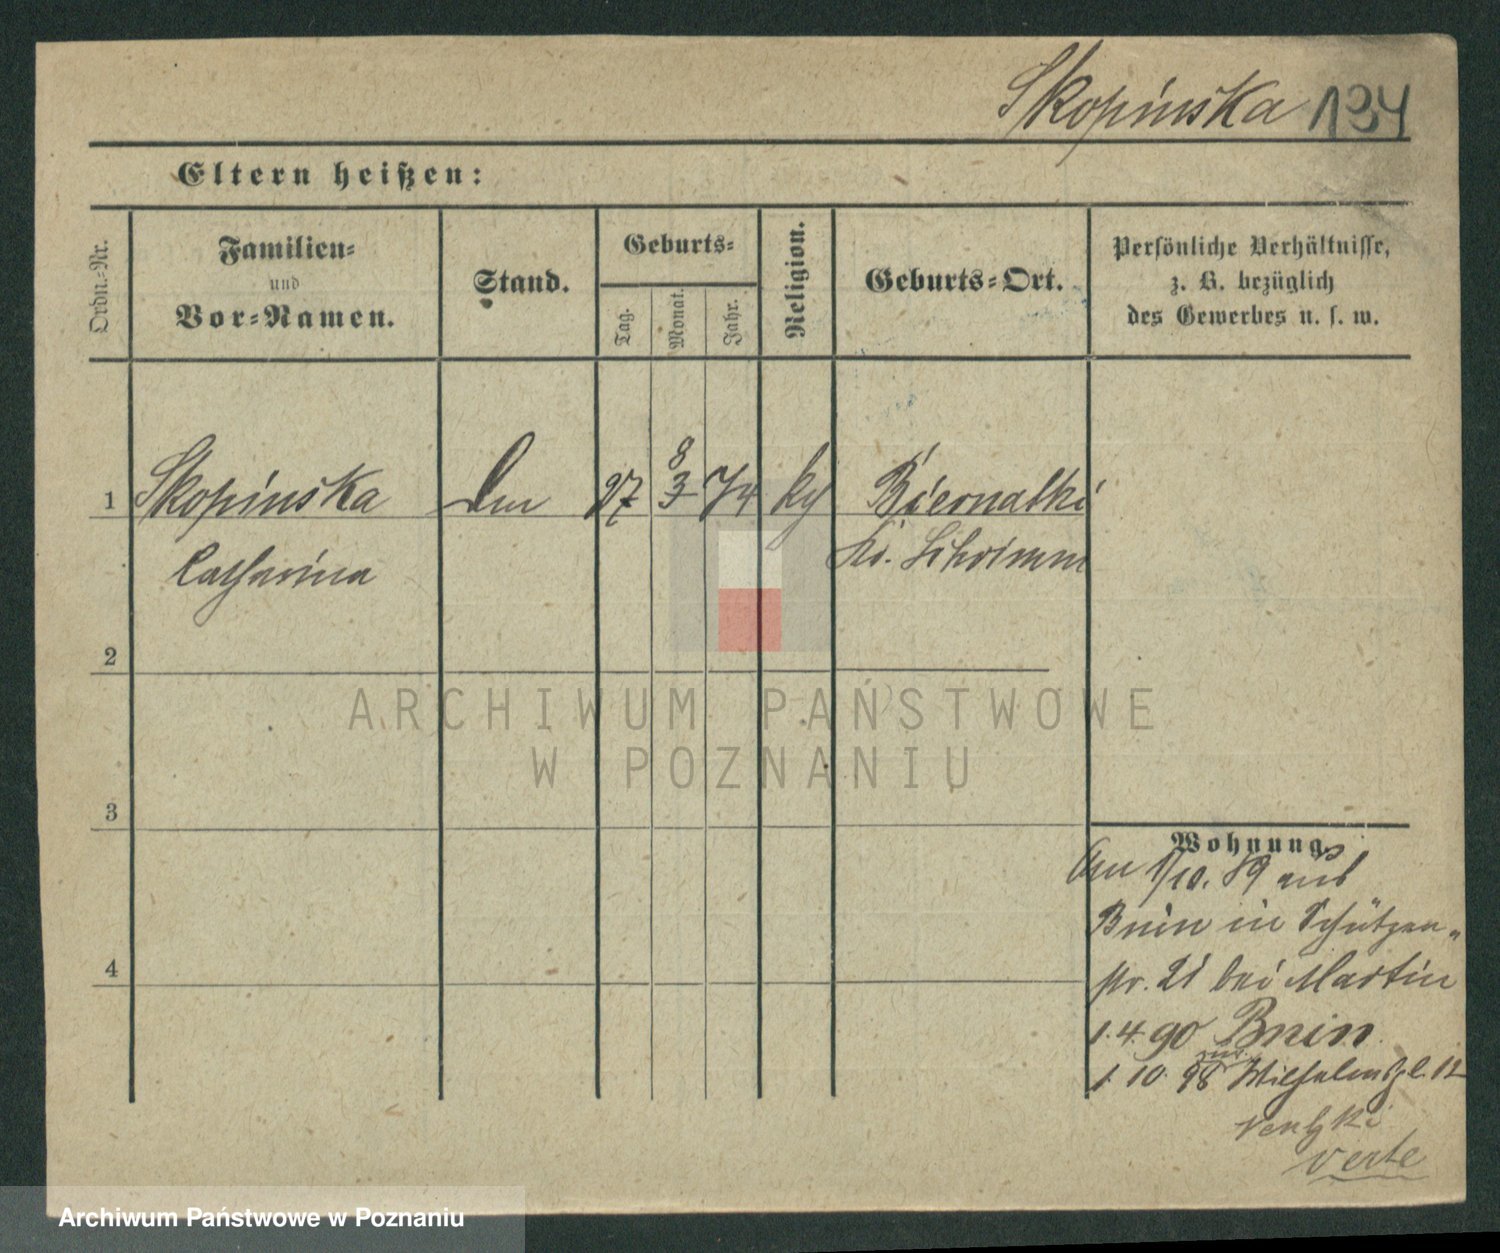 Skopinska 134
Eltern heißen:
Ordn.-Nr.
Familien-
und
Vor-Namen.
Stand.
Geburts-
Tag.
Monat.
Jahr.
Religion.
Geburts-Ort.
Persönliche Verhältnisse,
z. B. bezüglich
des Gewerbes u. s. w.
1 Skopinska 27 8 3 74 Biernatki
Catharina Kr. Schrimm
2
3
4
Wohnung.
Am 1/10. 89 aus
Bnin in Schützen-
str. 21 bei Martin
1.4.90 Bnin
1.10.98 Wilhelmspl. 12
verte
ARCHIWUM PAŃSTWOWE
W POZNANIU
Archiwum Państwowe w Poznaniu